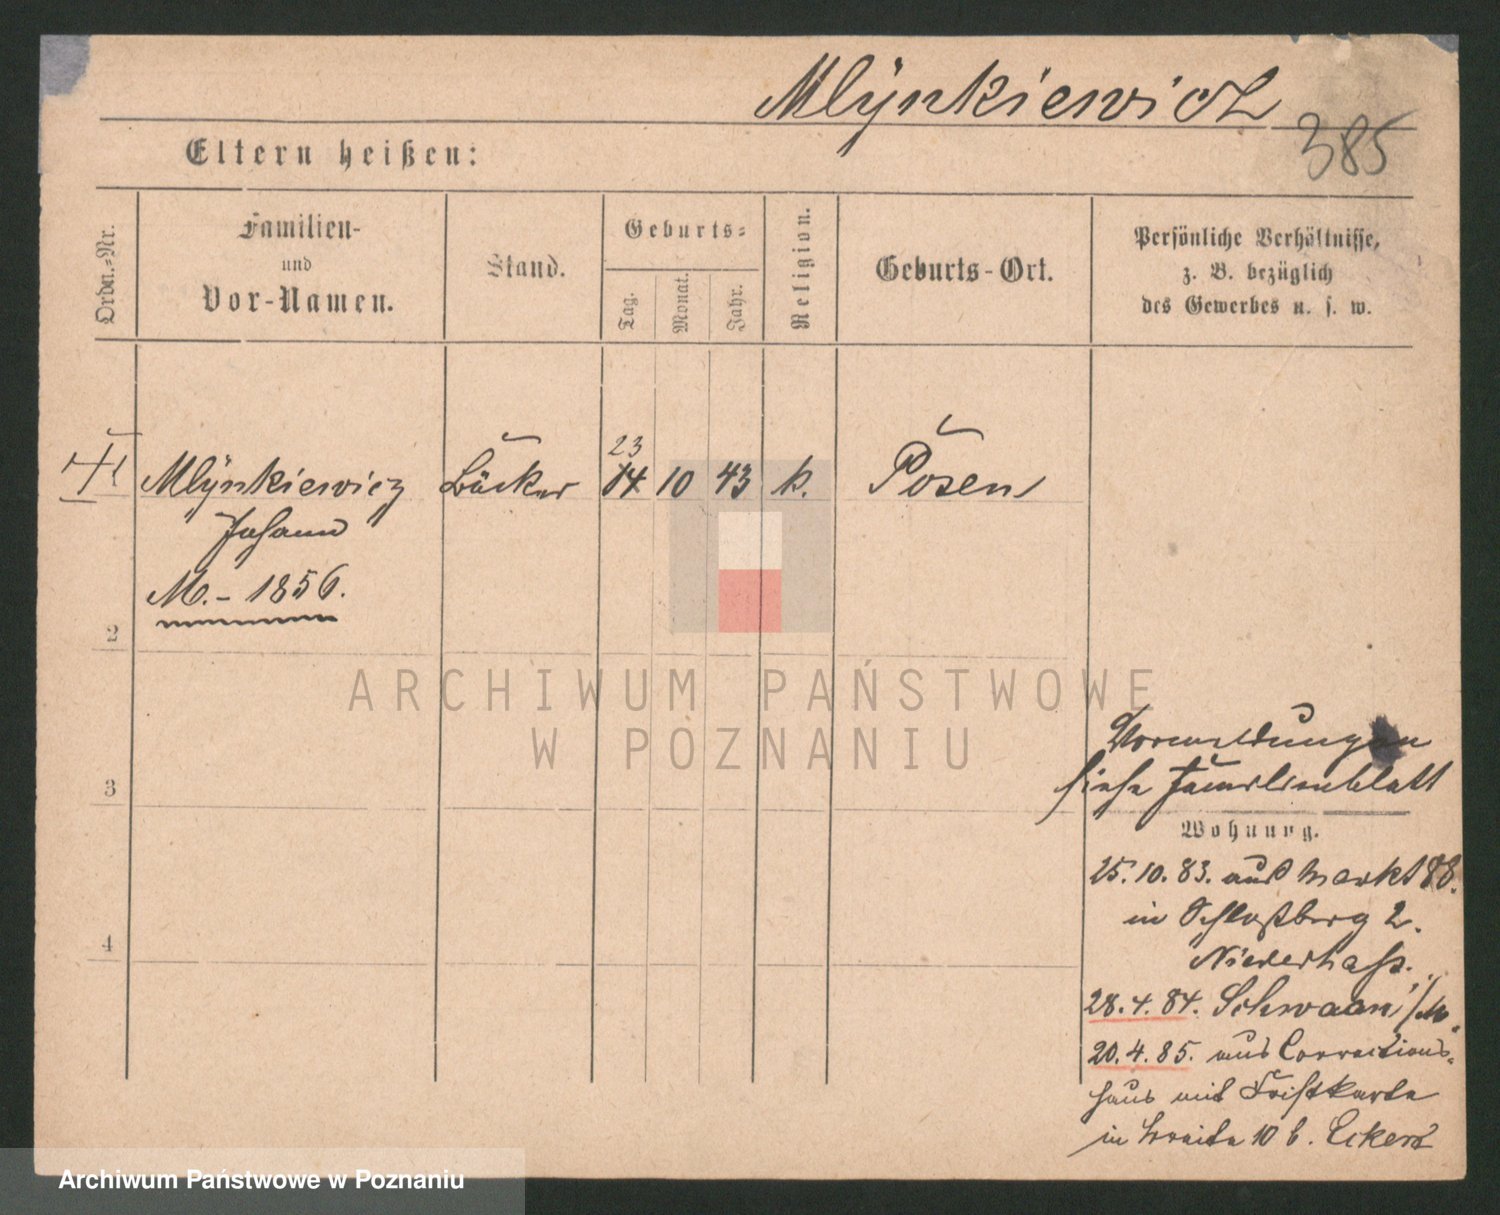 Mlynkiewicz
385
Eltern heißen:
Ordn.=Nr.
Familien-
und
Vor-Namen.
Stand.
Geburts=
Tag.
Monat.
Jahr.
Religion.
Geburts-Ort.
Persönliche Verhältnisse,
z. B. bezüglich
des Gewerbes u. s. w.
Mlynkiewicz Bäcker 23 14 10 43 k. Posen
Johann
M. - 1856.
2
3
4
Vormeldungen
siehe Familienblatt
Wohnung.
25.10.83. aus Markt 88.
in Schloßberg 2.
28.4.84. Schwaan
20.4.85. aus Corrections-
haus mit
in Breite 10 b.
ARCHIWUM PAŃSTWOWE
W POZNANIU
Archiwum Państwowe w Poznaniu